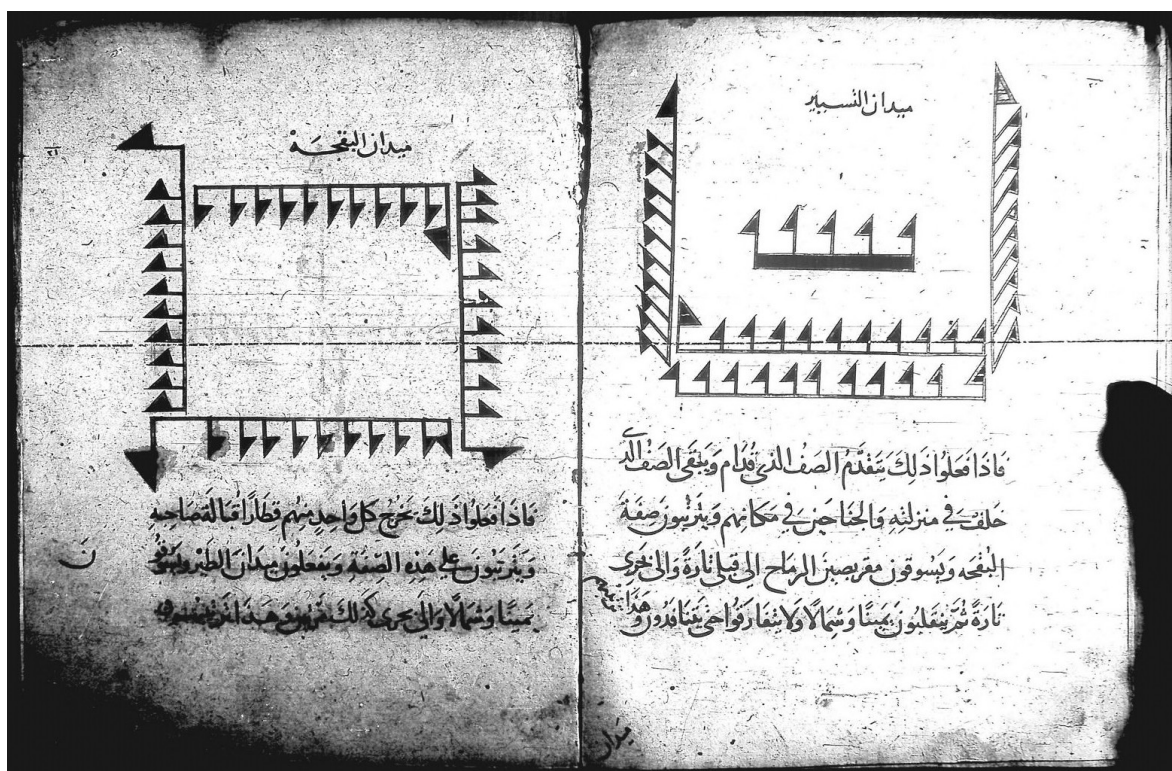 ميدان التسيير
فاذا فعلوا ذلك يتقدم الصف الذى قدام ويبقى الصف الذى
خلف فى منزلته والجناحين فى مكانهم ويترتبون صفة
البقجه ويسوقون مقربصين الرماح الى قبلى تارة والى بحرى
تارة ثم ينقلبون يمينا وشمالا ولا يتفارقوا حتى يتنافدون وهذا
ميدان
ميدان البقجة
فاذا فعلوا ذلك يخرج كل واحد منهم قطارا قبالة صاحبه
ويترتبون على هذه الصفة ويفعلون ميدان الطير ويسوقوا
يمينا وشمالا والى بحرى كذلك وهذا